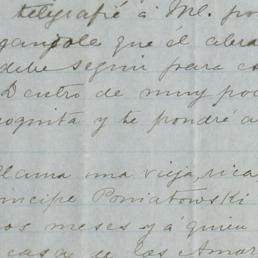 telegrafié á Ml. po
gandole que él abra
debe seguir para co
Dentro de muy poc
cognita y te pondré a
llama una vieja, rica
ríncipe Poniatowski
os meses y á quien
casa de las Amar